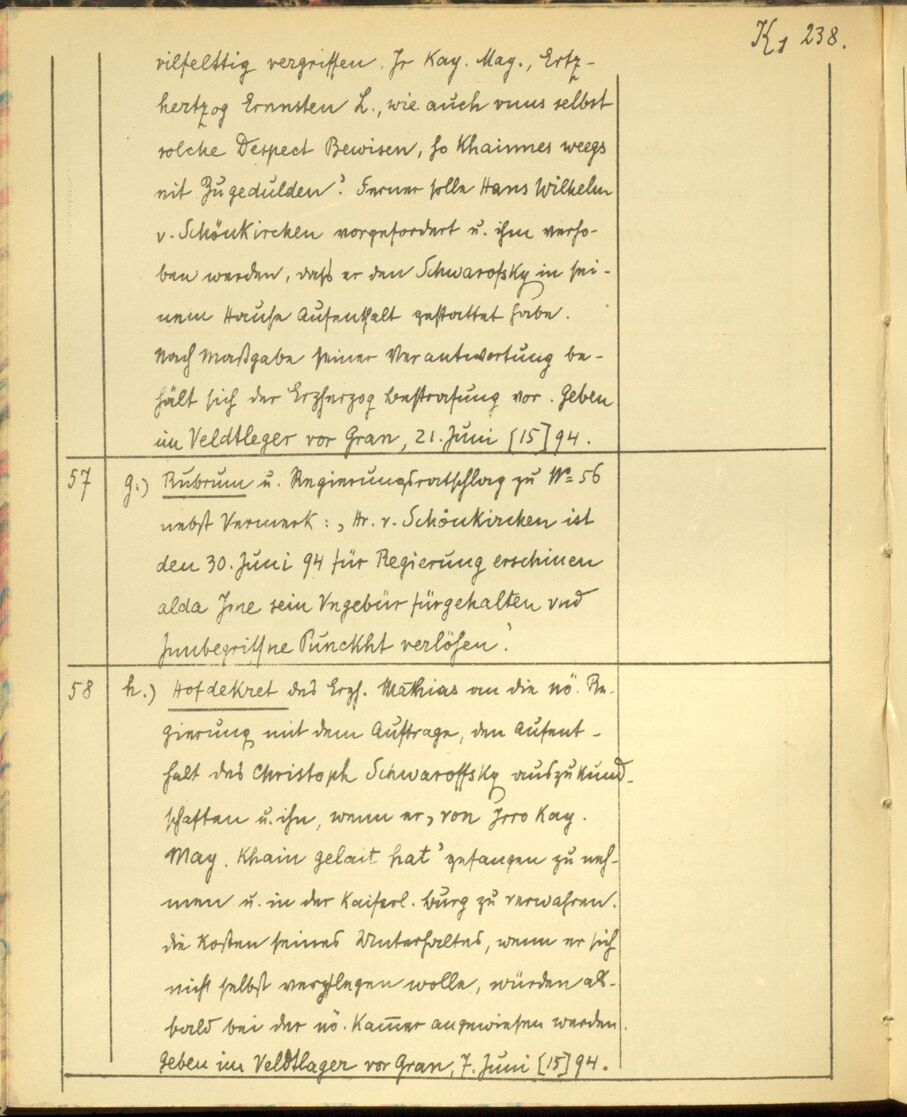 K1 238.
vilfelttig vergriffen. Ir Kay. May., Ertz-
hertzog Ernnsten L., wie auch vnns selbst
solche Despect Bewisen, so Khainnes weegs
nit Zugedulden‘. Ferner solle Hans Wilhelm
v. Schönkirchen vorgefordert u. ihm verho-
ben werden, daß er den Schwarofsky in sei-
nem Hause Aufenthalt gestattet habe.
Nach Maßgabe seiner Verantwortung be-
hält sich der Erzherzog Bestrafung vor. Geben
im Veldtleger vor Gran, 21. Juni [15]94.
57 g.) Rubrum u. Regierungsratschlag zu No 56
nebst Vermerk: „Hr. v. Schönkirchen ist
den 30. Juni 94 für Regierung erschinen
alda Jme sein Vngebür fürgehalten vnd
Innbegriffne Punckht verlösen.‘
58 h.) Hofdekret des Erzh. Mathias an die nö. Re-
gierung mit dem Auftrage, den Aufent-
halt des Christoph Schwaroffsky auszukund-
schaften u. ihn, wenn er „von Irro Kay.
May. Khain gelait hat‘ gefangen zu neh-
men u. in der Kaiserl. Burg zu verwahren.
Die Kosten seines Unterhaltes, wenn er sich
nicht selbst verpflegen wolle, würden als-
bald bei der nö. Kammer angewiesen werden.
Geben im Veldtlager vor Gran, 7. Juni [15]94.